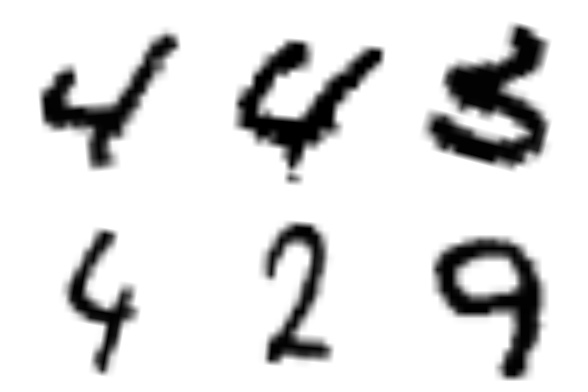 4 4 3
4 2 9